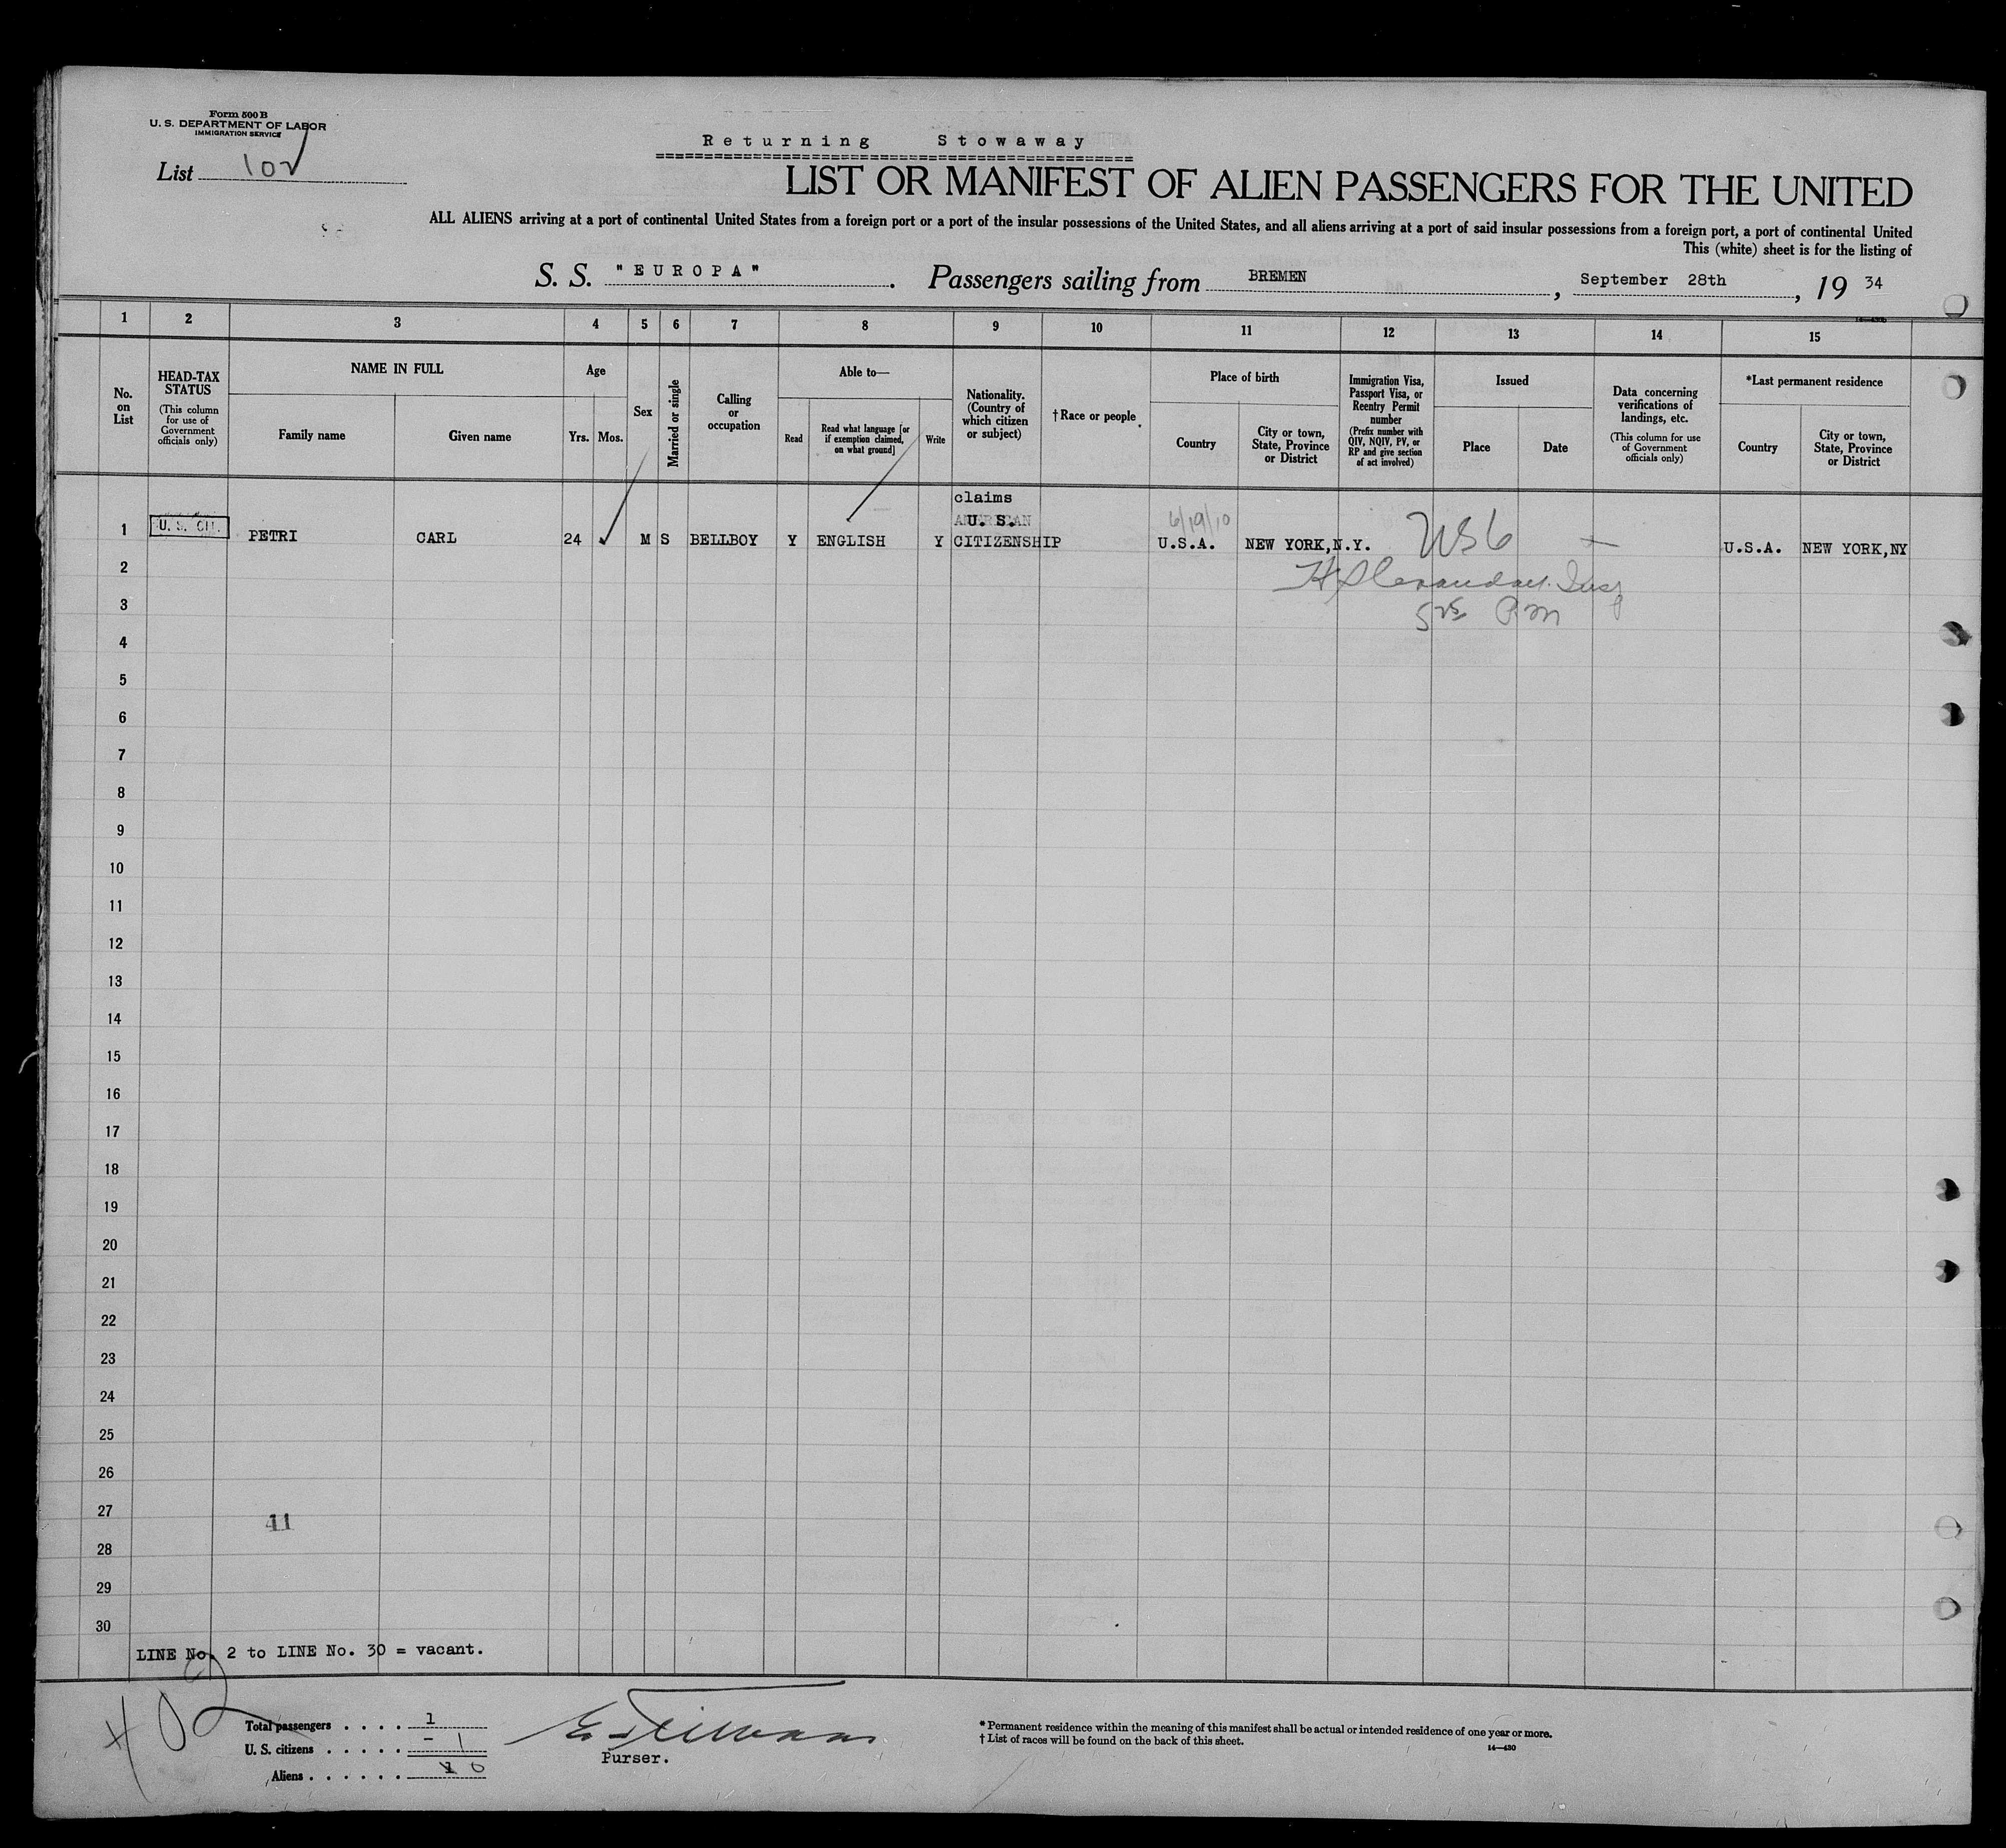 Form 500 B
U. S. DEPARTMENT OF LABOR
IMMIGRATION SERVICE
List 102
Returning Stowaway
LIST OR MANIFEST OF ALIEN PASSENGERS FOR THE UNITED
ALL ALIENS arriving at a port of continental United States from a foreign port or a port of the insular possessions of the United States, and all aliens arriving at a port of said insular possessions from a foreign port, a port of continental United
This (white) sheet is for the listing of
S. S. "EUROPA". Passengers sailing from BREMEN, September 28th, 19 34
1 2 3 4 5 6 7 8 9 10 11 12 13 14 15
No. on List
HEAD-TAX STATUS
(This column for use of Government officials only)
NAME IN FULL
Family name
Given name
Age
Yrs. Mos.
Sex
Married or single
Calling or occupation
Able to—
Read
Read what language [or if exemption claimed, on what ground]
Write
Nationality. (Country of which citizen or subject)
†Race or people
Place of birth
Country
City or town, State, Province or District
Immigration Visa, Passport Visa, or Reentry Permit number
(Prefix number with QIV, NQIV, PV, or RP and give section of act involved)
Issued
Place
Date
Data concerning verifications of landings, etc.
(This column for use of Government officials only)
*Last permanent residence
Country
City or town, State, Province or District
claims
U. S.
6/19/10
1 U. S. CIT. PETRI CARL 24 M S BELLBOY Y ENGLISH Y CITIZENSHIP U.S.A. NEW YORK,N.Y. U.S.A. NEW YORK,NY
2
3
4
5
6
7
8
9
10
11
12
13
14
15
16
17
18
19
20
21
22
23
24
25
26
27
41
28
29
30
LINE No. 2 to LINE No. 30 = vacant.
Total passengers . . . . 1
U. S. citizens . . . . . - 1
Aliens . . . . . . 1 0
Purser.
* Permanent residence within the meaning of this manifest shall be actual or intended residence of one year or more.
† List of races will be found on the back of this sheet.
14—430